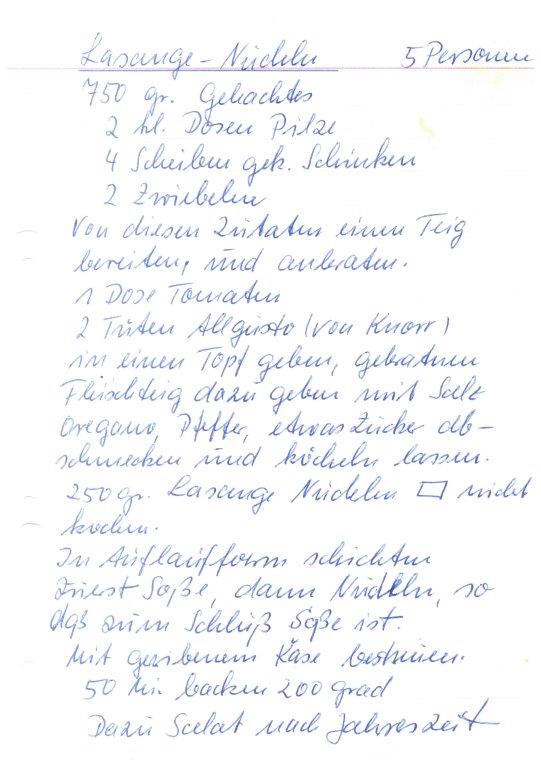 Lasange-Nudeln 5 Personen
750 gr. Gehacktes
2 kl. Dosen Pilze
4 Scheiben gek. Schinken
2 Zwiebeln
Von diesen Zutaten einen Teig
bereiten, und anbraten.
1 Dose Tomaten
2 Tüten Allgusto (von Knorr)
in einen Topf geben, gebratnen
Fleischteig dazu geben mit Salz
Oregano, Pfeffer, etwas Zucker ab-
schmecken und köcheln lassen.
250 gr. Lasange Nudeln nicht
kochen.
In Auflaufform schichten
zuerst Soße, dann Nudeln, so
daß zum Schluß Soße ist.
Mit geribenem Käse bestreuen.
50 Min. backen 200 grad
Dazu Salat nach Jahreszeit